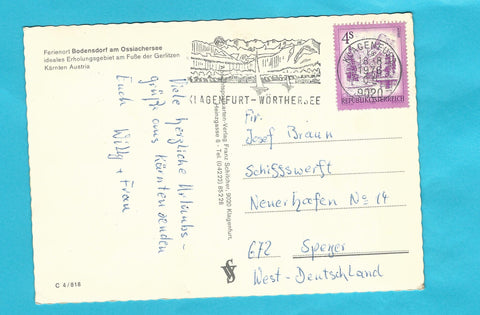 Ferienort Bodensdorf am Ossiachersee
ideales Erholungsgebiet am Fuße der Gerlitzen
Kärnten Austria
Viele herzliche Urlaubs-
grüße aus Kärnten senden
Euch Willy + Frau
Verlag Franz Schilcher, 9020 Klagenfurt,
6 - Tel. (04222) 85228
KLAGENFURT-WÖRTHERSEE
4S
KLAGENFURT
9020
REPUBLIK ÖSTERREICH
Fir.
Josef Braun
Schiffswerft
Neuerhafen No 14
672 Speyer
West-Deutschland
C 4/818